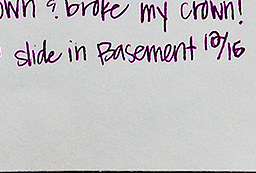 own & broke my crown!
slide in Basement 12/15